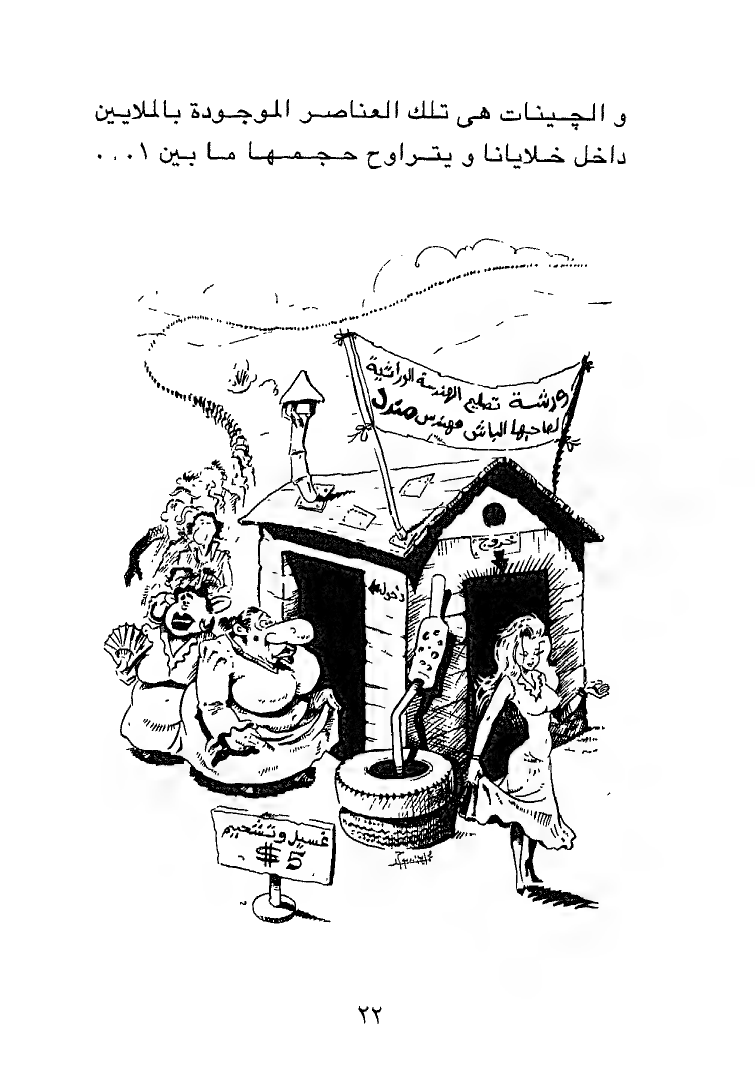 و الچينات هى تلك العناصر الموجودة بالملايين
داخل خلايانا و يتراوح حجمها ما بين ٠,٠٠١
ورشة تصليح الهندسة الوراثية
لصاحبها الباش مهندس مندل
خروج
دخول
غسيل وتشحيم
$ 5
٢٢